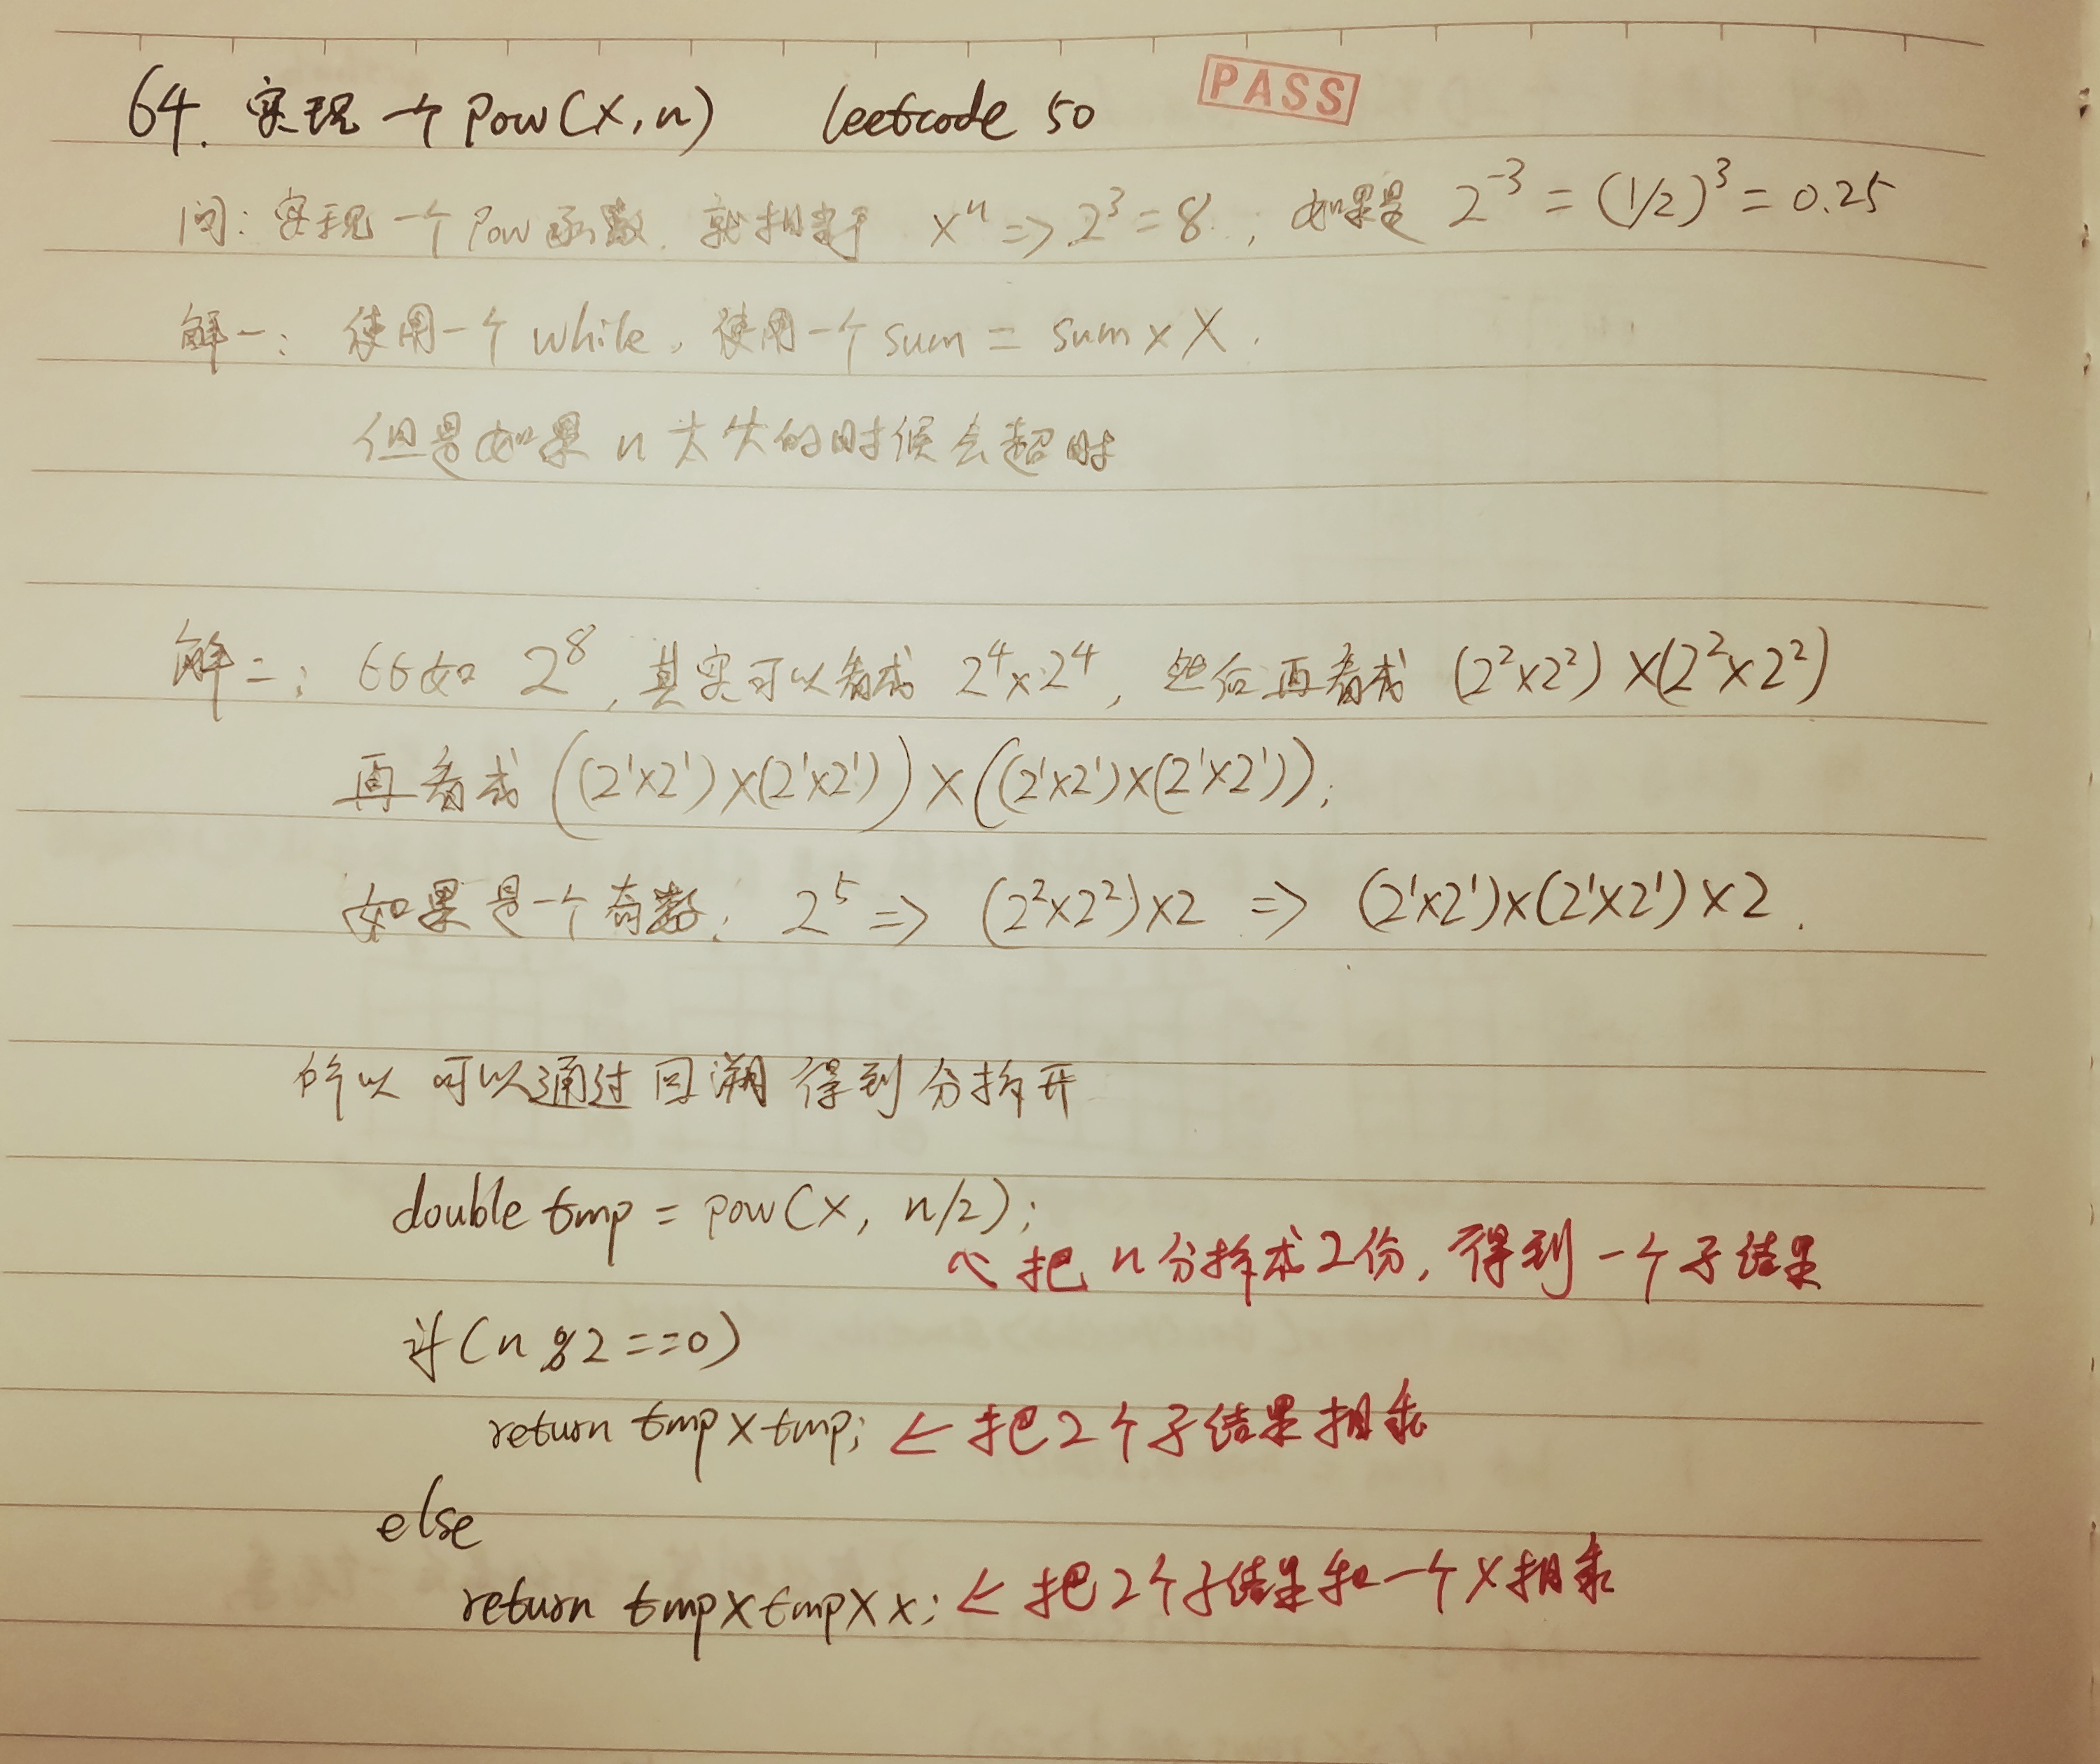 64. 实现一个pow(x,n) leetcode 50 PASS
问: 实现一个pow函数, 就相当于 xⁿ => 2³ = 8, 如果是 2⁻³ = (1/2)³ = 0.25
解一: 使用一个 while, 使用一个 sum = sum × X.
但是如果 n 太大的时候会超时
解二: 比如 2⁸, 其实可以看成 2⁴×2⁴, 然后再看成 (2²×2²)×(2²×2²)
再看成 ((2¹×2¹)×(2¹×2¹))×((2¹×2¹)×(2¹×2¹));
如果是一个奇数: 2⁵ => (2²×2²)×2 => (2¹×2¹)×(2¹×2¹)×2.
所以 可以通过回溯 得到分拆开
double tmp = pow(x, n/2);
把 n 分拆成2份, 得到一个子结果
if(n%2==0)
return tmp×tmp; ← 把2个子结果相乘
else
return tmp×tmp×x; ← 把2个子结果和一个x相乘